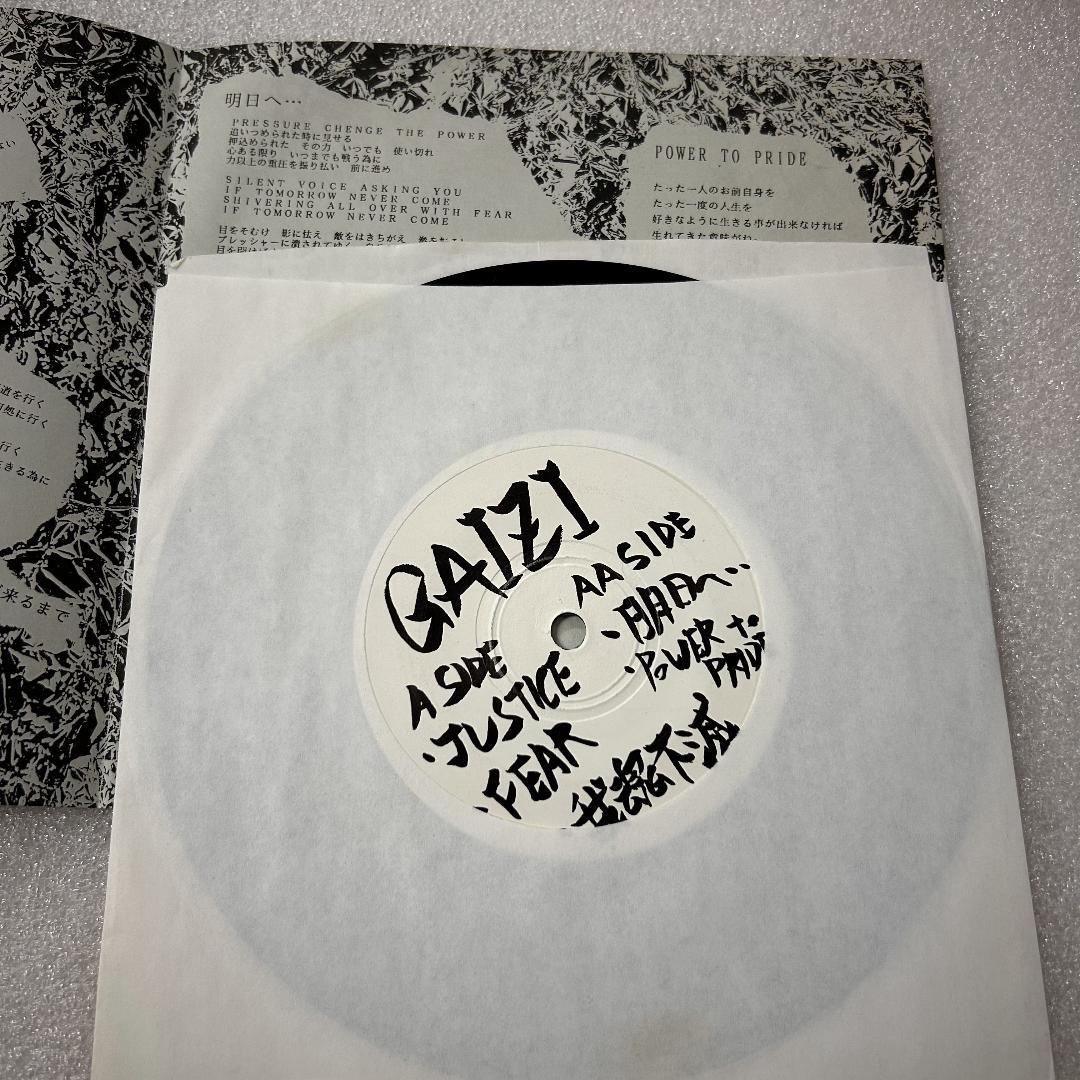 明日へ…
PRESSURE CHENGE THE POWER
追いつめられた時に見せる
押込められた その力 いつでも 使い切れ
心ある限り いつまでも戦う為に
力以上の重圧を振り払い 前に進め
SILENT VOICE ASKING YOU
IF TOMORROW NEVER COME
SHIVERING ALL OVER WITH FEAR
IF TOMORROW NEVER COME
目をそむけ 影に怯え 敵をはきちがえ
プレッシャーに潰されてゆく
POWER TO PRIDE
たった一人のお前自身を
たった一度の人生を
好きなように生きる事が出来なければ
生れてきた意味がね
道を行く
処に行く
行く
きる為に
来るまで
GAIZI
A SIDE
・JUSTICE
・FEAR
AA SIDE
・明日へ…
・POWER to
PRIDE
我魂不滅